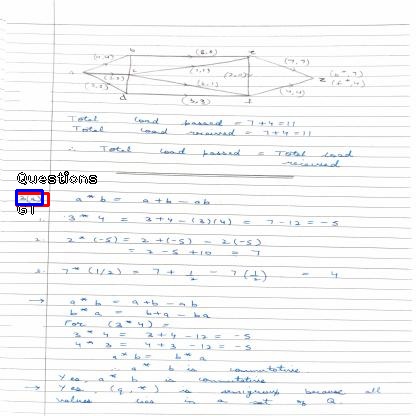 b (8,8) e
(7,7)
a c z
d (3,3) f (4,4)
Total load passed = 7+4=11
Total load received = 7+4=11
∴ Total load passed = Total load
received
Questions
a * b = a+b-ab
1. 3 * 4 = 3+4-(3)(4) = 7-12=-5
2. 2*(-5) = 2+(-5) - 2(-5)
= 2-5+10 = 7
3. 7*(1/2) = 7 + 1/2 - 7(1/2) = 4
→ a * b = a+b-ab
b * a = b+a - ba
For (3*4) =
3 * 4 = 3+4-12 = -5
4 * 3 = 4+3-12 = -5
a*b = b*a
∴ a*b is commutative
Yes, a*b is commutative
→ Yes, (Q,*) is semigroup because all
values lies in a set of Q.